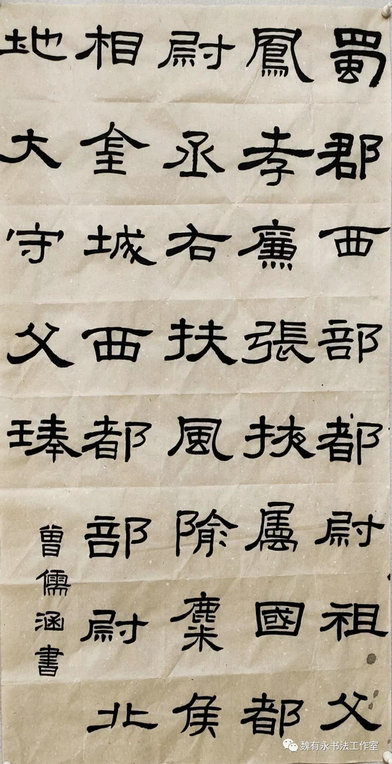 蜀郡西部都尉祖父
鳳孝廉張掖属國都
尉丞右扶風隃麋侯
相金城西都部尉北
地大守父琫
曾儒涵書
魏有永书法工作室